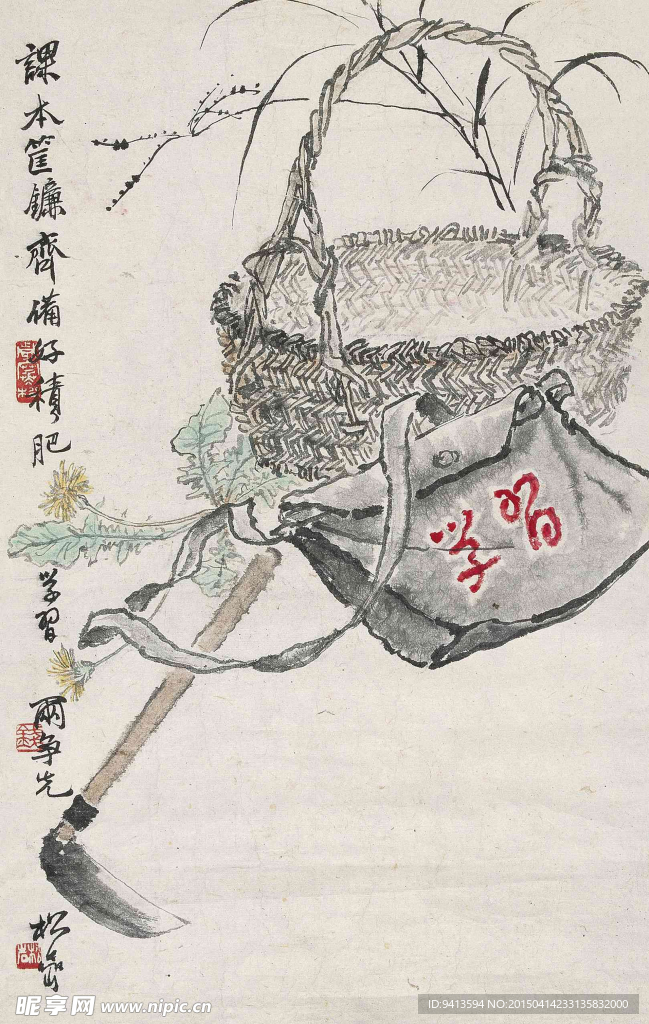 課本筐鐮齊備好積肥
学習
兩争先
松嵒
学習
昵享网 www.nipic.cn
ID:9413594 NO:20150414233135832000